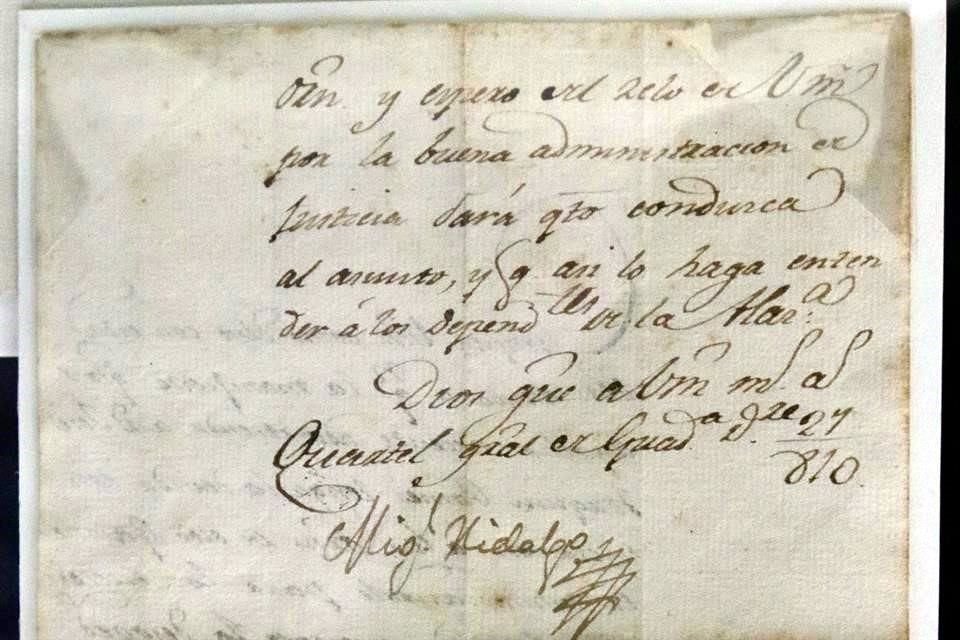 orn. y espero del zelo de Vm
por la buena administracion de
Justicia dará qto condusca
al asunto, y q asi lo haga enten
der á los depend.tes de la Har.a
Dios gue a Vm m.s a.s
Quartel gral de Guad.a D.re 27
810.
Mig.l Hidalgo